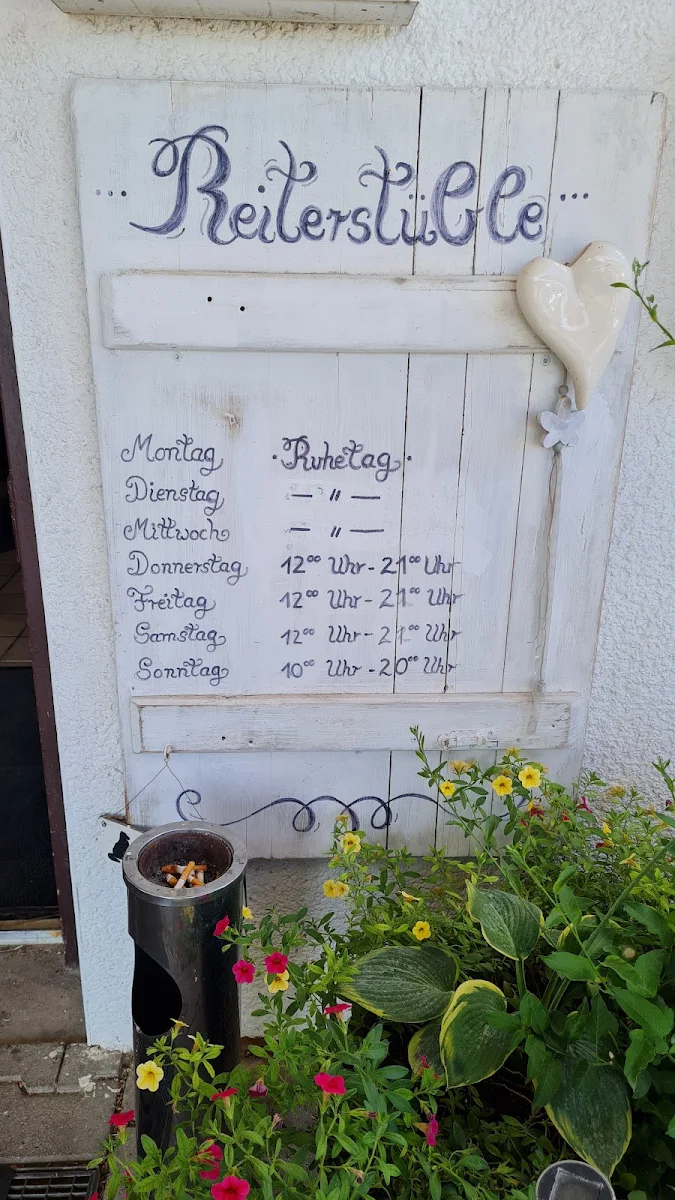 ... Reiterstüble ...
Montag · Ruhetag ·
Dienstag — " —
Mittwoch — " —
Donnerstag 12⁰⁰ Uhr - 21⁰⁰ Uhr
Freitag 12⁰⁰ Uhr - 21⁰⁰ Uhr
Samstag 12⁰⁰ Uhr - 21⁰⁰ Uhr
Sonntag 10⁰⁰ Uhr - 20⁰⁰ Uhr